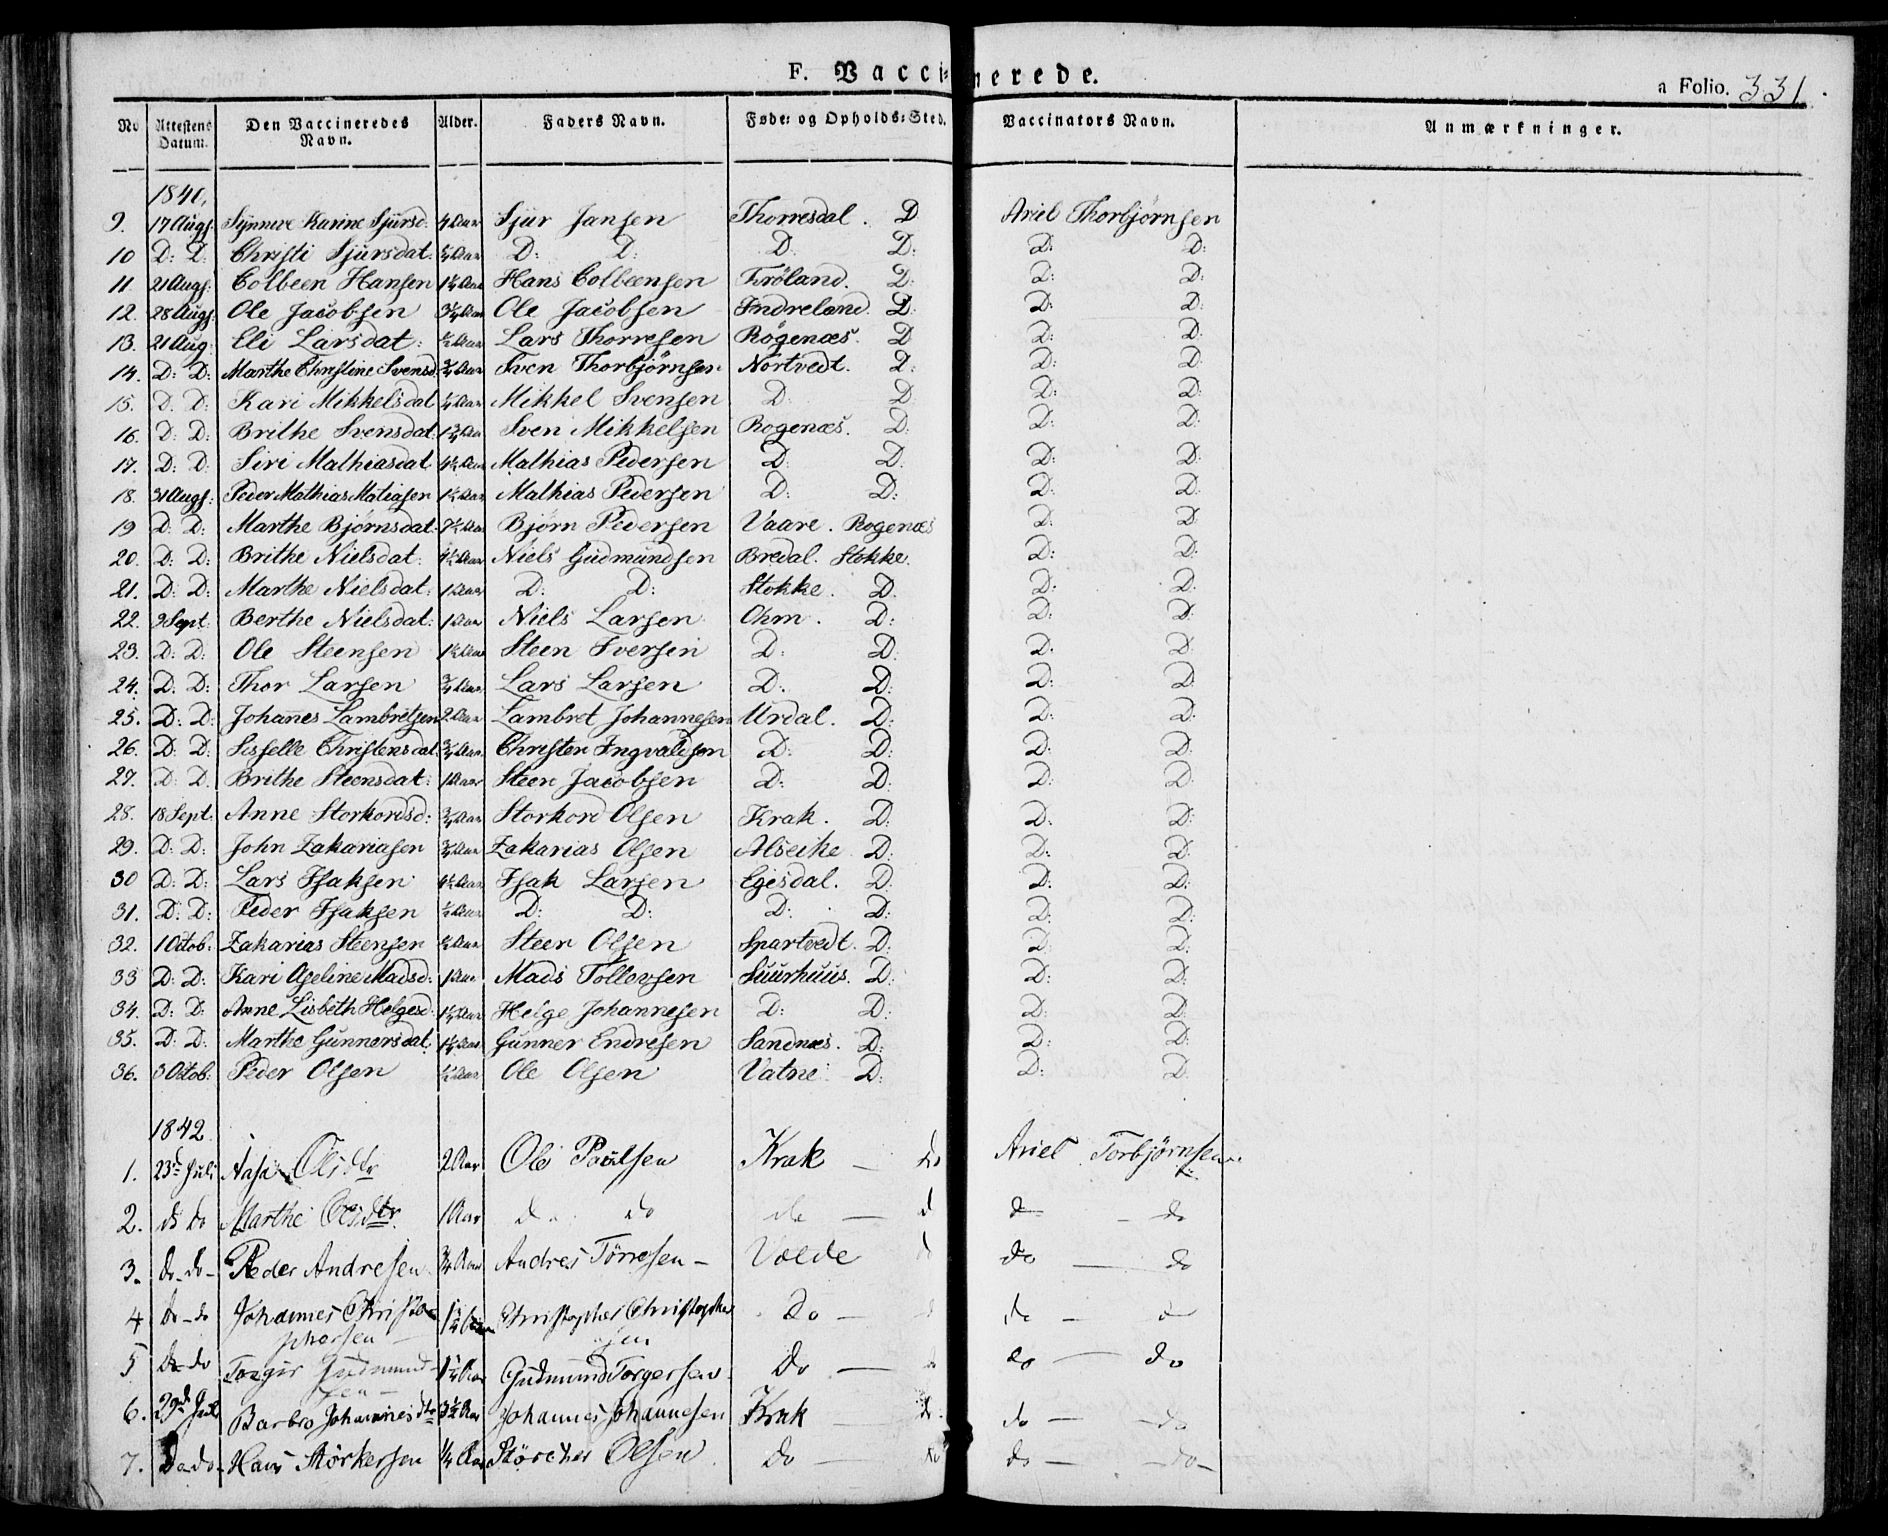 F. Vaccinerede.
a Folio. 331.
No | Attestens Datum. | Den Vaccineredes Navn. | Alder. | Faders Navn. | Føde- og Opholds-Sted. | Vaccinators Navn. | Anmærkninger.
1841,
9. 17 Augs. Synneve Karine Sjursd: 4 Aar Sjur Jansen Thorresdal. D Ariel Thorbjørnsen
10 D: D: Christi Sjursdat. Aar D: D: D: D: D: D:
11 21 Augs. Colbeen Hansen Aar Hans Colbeensen Frøland. D: D: D:
12. 28 Augs. Ole Jacobsen Aar Ole Jacobsen Indreland. D. D: D:
13. 21 Aug: Eli Larsdat: Aar Lars Thorresen Rögenæs. D D: D:
14. D: D: Marthe Christine Svensd: Aar Sven Thorbjörnsen Nortvedt. D: D: D:
15. D. D: Kari Mikkelsdat Aar Mikkel Svensen D: D D: D:
16. D: D: Brithe Svensdat. Aar Sven Mikkelsen Rogenæs. D: D: D:
17. D: D: Siri Mathiasdat. Aar Mathias Pedersen D: D: D: D:
18. 31 Augs: Peder Mathias Matiasen Aar Mathias Pedersen D: D: D: D:
19 D: D: Marthe Bjørnsdat. Aar Bjørn Pedersen Vaare. Rogenæs D: D:
20. D: D: Brithe Nielsdat: Aar Niels Gudmundsen Bredal. Stokke. D: D:
21. D: D: Marthe Nielsdat: 1 Aar D: D: Stokke. D. D: D:
22. 9 Sept. Berthe Nielsdat: 1 Aar Niels Larsen Ohm. D: D: D:
23. D: D: Ole Steensen Aar Steen Iversen D: D: D. D:
24. D. D: Thor Larsen Aar Lars Larsen D: D: D: D:
25. D: D: Johanes Lambretsen 2 Aar Lambret Johannesen Urdal. D: D: D:
26. D: D: Sisselle Christensdat. Aar Christen Ingvaldsen D: D: D: D:
27. D: D. Brithe Steensdat: 1 Aar Steen Jacobsen D: D: D: D:
28. 18 Sept. Anne Storkordsd: Aar Storkord Olsen Krak. D: D: D:
29. D: D: John Zakariasen Aar Zakarias Olsen Alseike D: D: D:
30 D: D: Lars Isaksen Aar Isak Larsen Egisdal. D: D: D:
31. D: D: Peder Isaksen Aar D: D: D: D: D: D:
32. 1 Octob. Zakarias Steensen Aar Steen Olsen Spartvedt. D: D: D:
33 D: D: Kari Oseline Madsd: 1 Aar Mads Tollevsen Suurhuus. D: D: D:
34. D: D: Anne Lisbeth Helgesd: Aar Helge Johannesen D: D: D: D:
35. D: D: Marthe Gunnersdat. Aar Gunner Endresen Sandnæs. D: D: D:
36. 3 Octob: Peder Olsen Aar Ole Olsen Vatne D: D: D:
1842
1. 23de Juli Aasa Olsdtr 2 Aar Ole Poulsen Krak — do Ariel Torbjørnsen
2. do do Marthe Olesdtr. 1 Aar do do do — d do — do
3. do-do- Peder Andresen Aar Andres Törresen - Vølde do — do
4 do-do Johannes Christo- Aar Christopher Christopher do — do — do
phersen — sen
5 do do Torger Gudmund- Aar Gudmund Torgersen do — do — do
sen —
6. 29de Juli Barbro Johannesdtr Aar Johannes Johannesen Krak — do. do — do
7. do do. Hans Störkersen Aar Störcker Olsen do — do do — do —